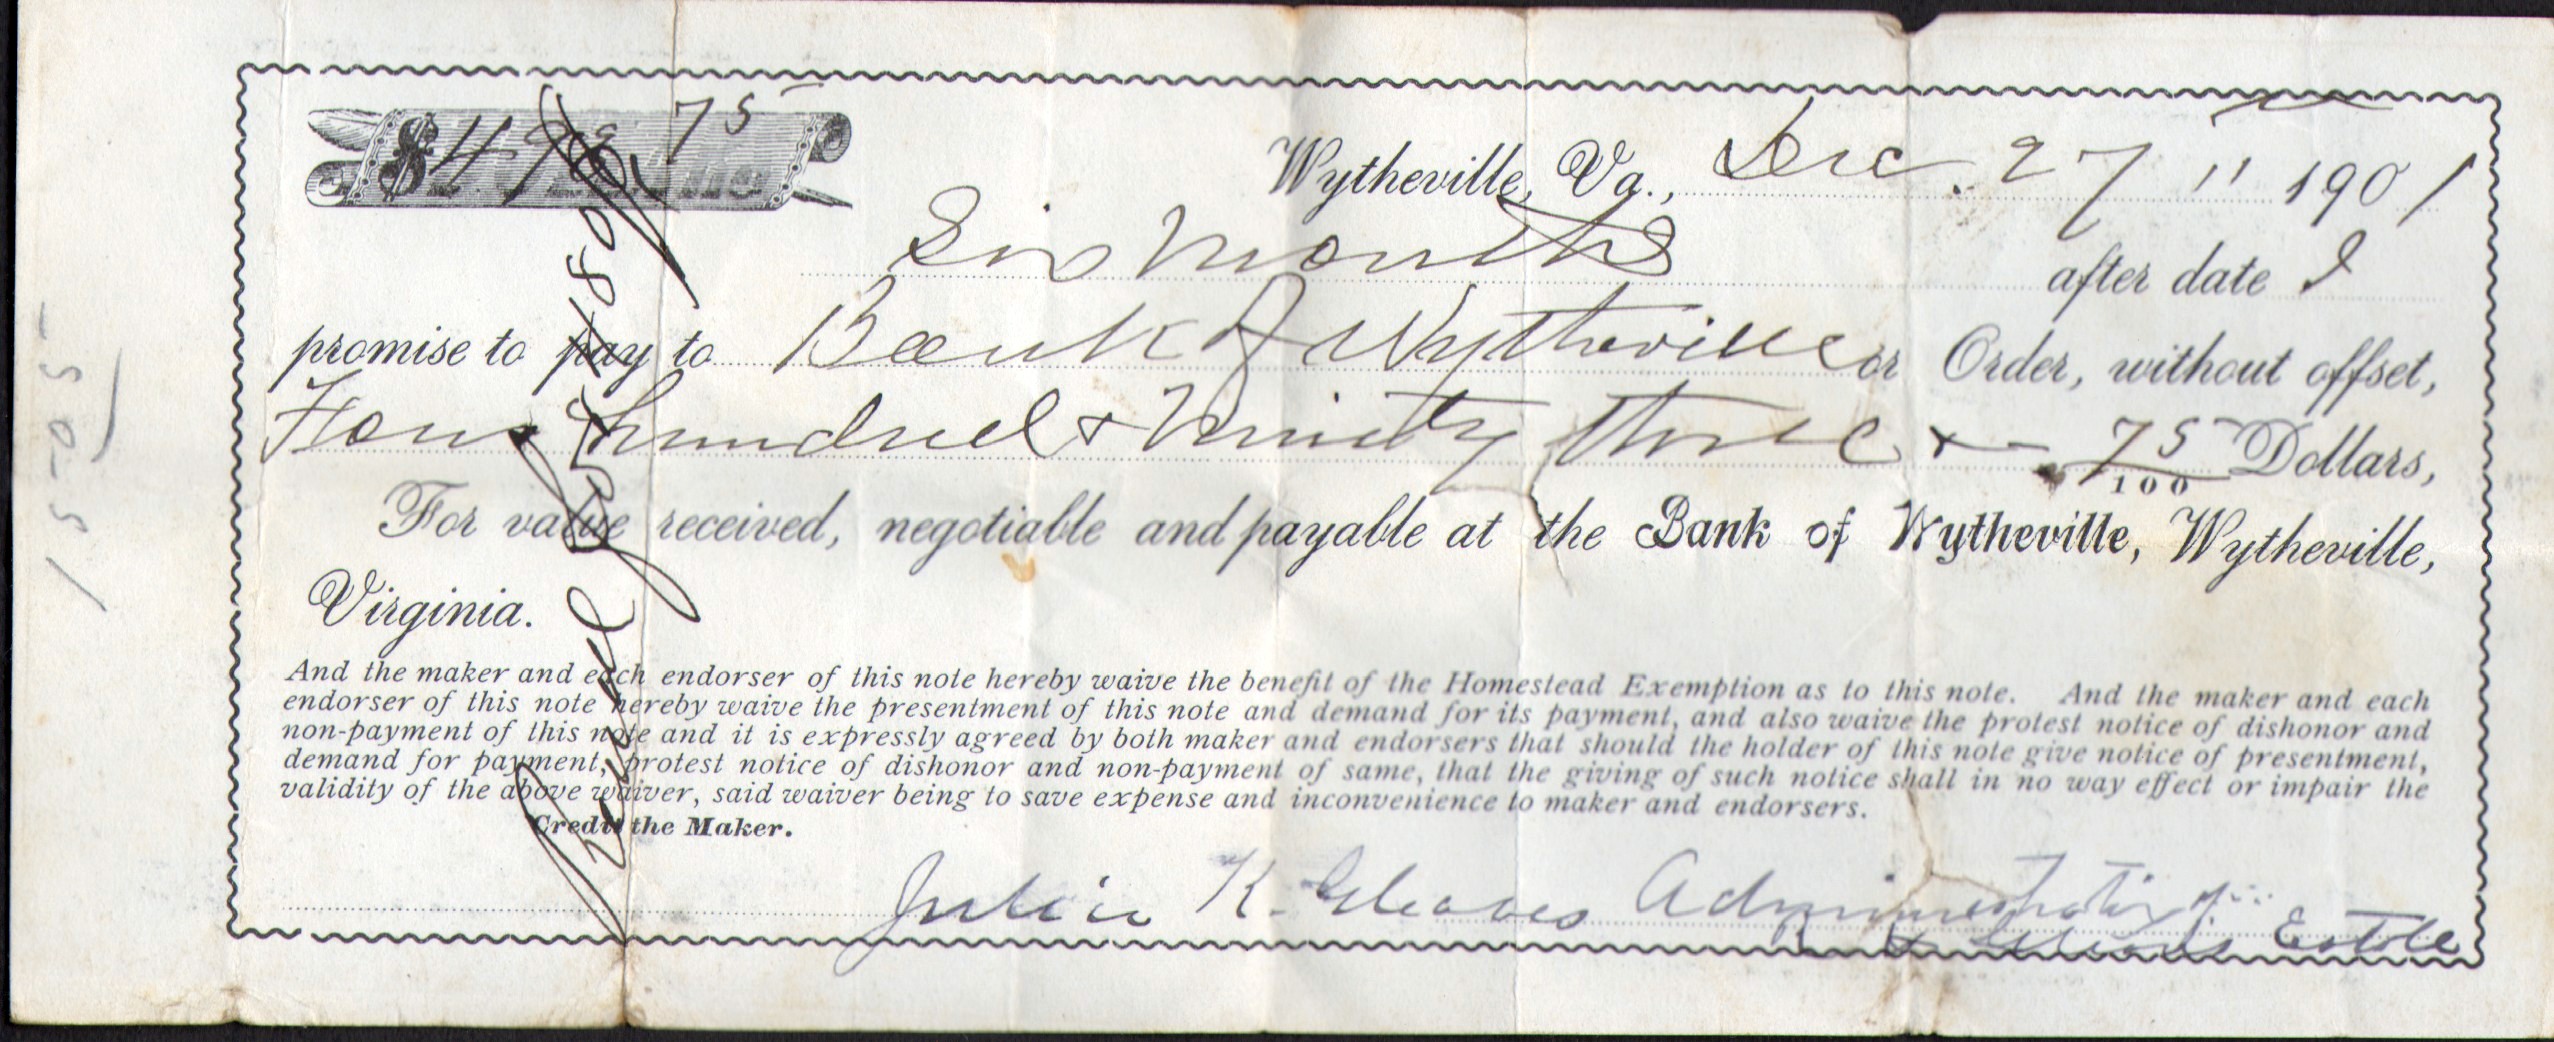 $493.75
Wytheville, Va., Dec. 27" 1901
Six Months after date I
promise to pay to Bank of Wytheville or Order, without offset,
Four hundred & Ninety three & 75/100 Dollars,
For value received, negotiable and payable at the Bank of Wytheville, Wytheville,
Virginia.
And the maker and each endorser of this note hereby waive the benefit of the Homestead Exemption as to this note. And the maker and each
endorser of this note hereby waive the presentment of this note and demand for its payment, and also waive the protest notice of dishonor and
non-payment of this note and it is expressly agreed by both maker and endorsers that should the holder of this note give notice of presentment,
demand for payment, protest notice of dishonor and non-payment of same, that the giving of such notice shall in no way effect or impair the
validity of the above waiver, said waiver being to save expense and inconvenience to maker and endorsers.
Credit the Maker.
Julia K. Gleaves Administratrix of
Gleaves Estate
15-05